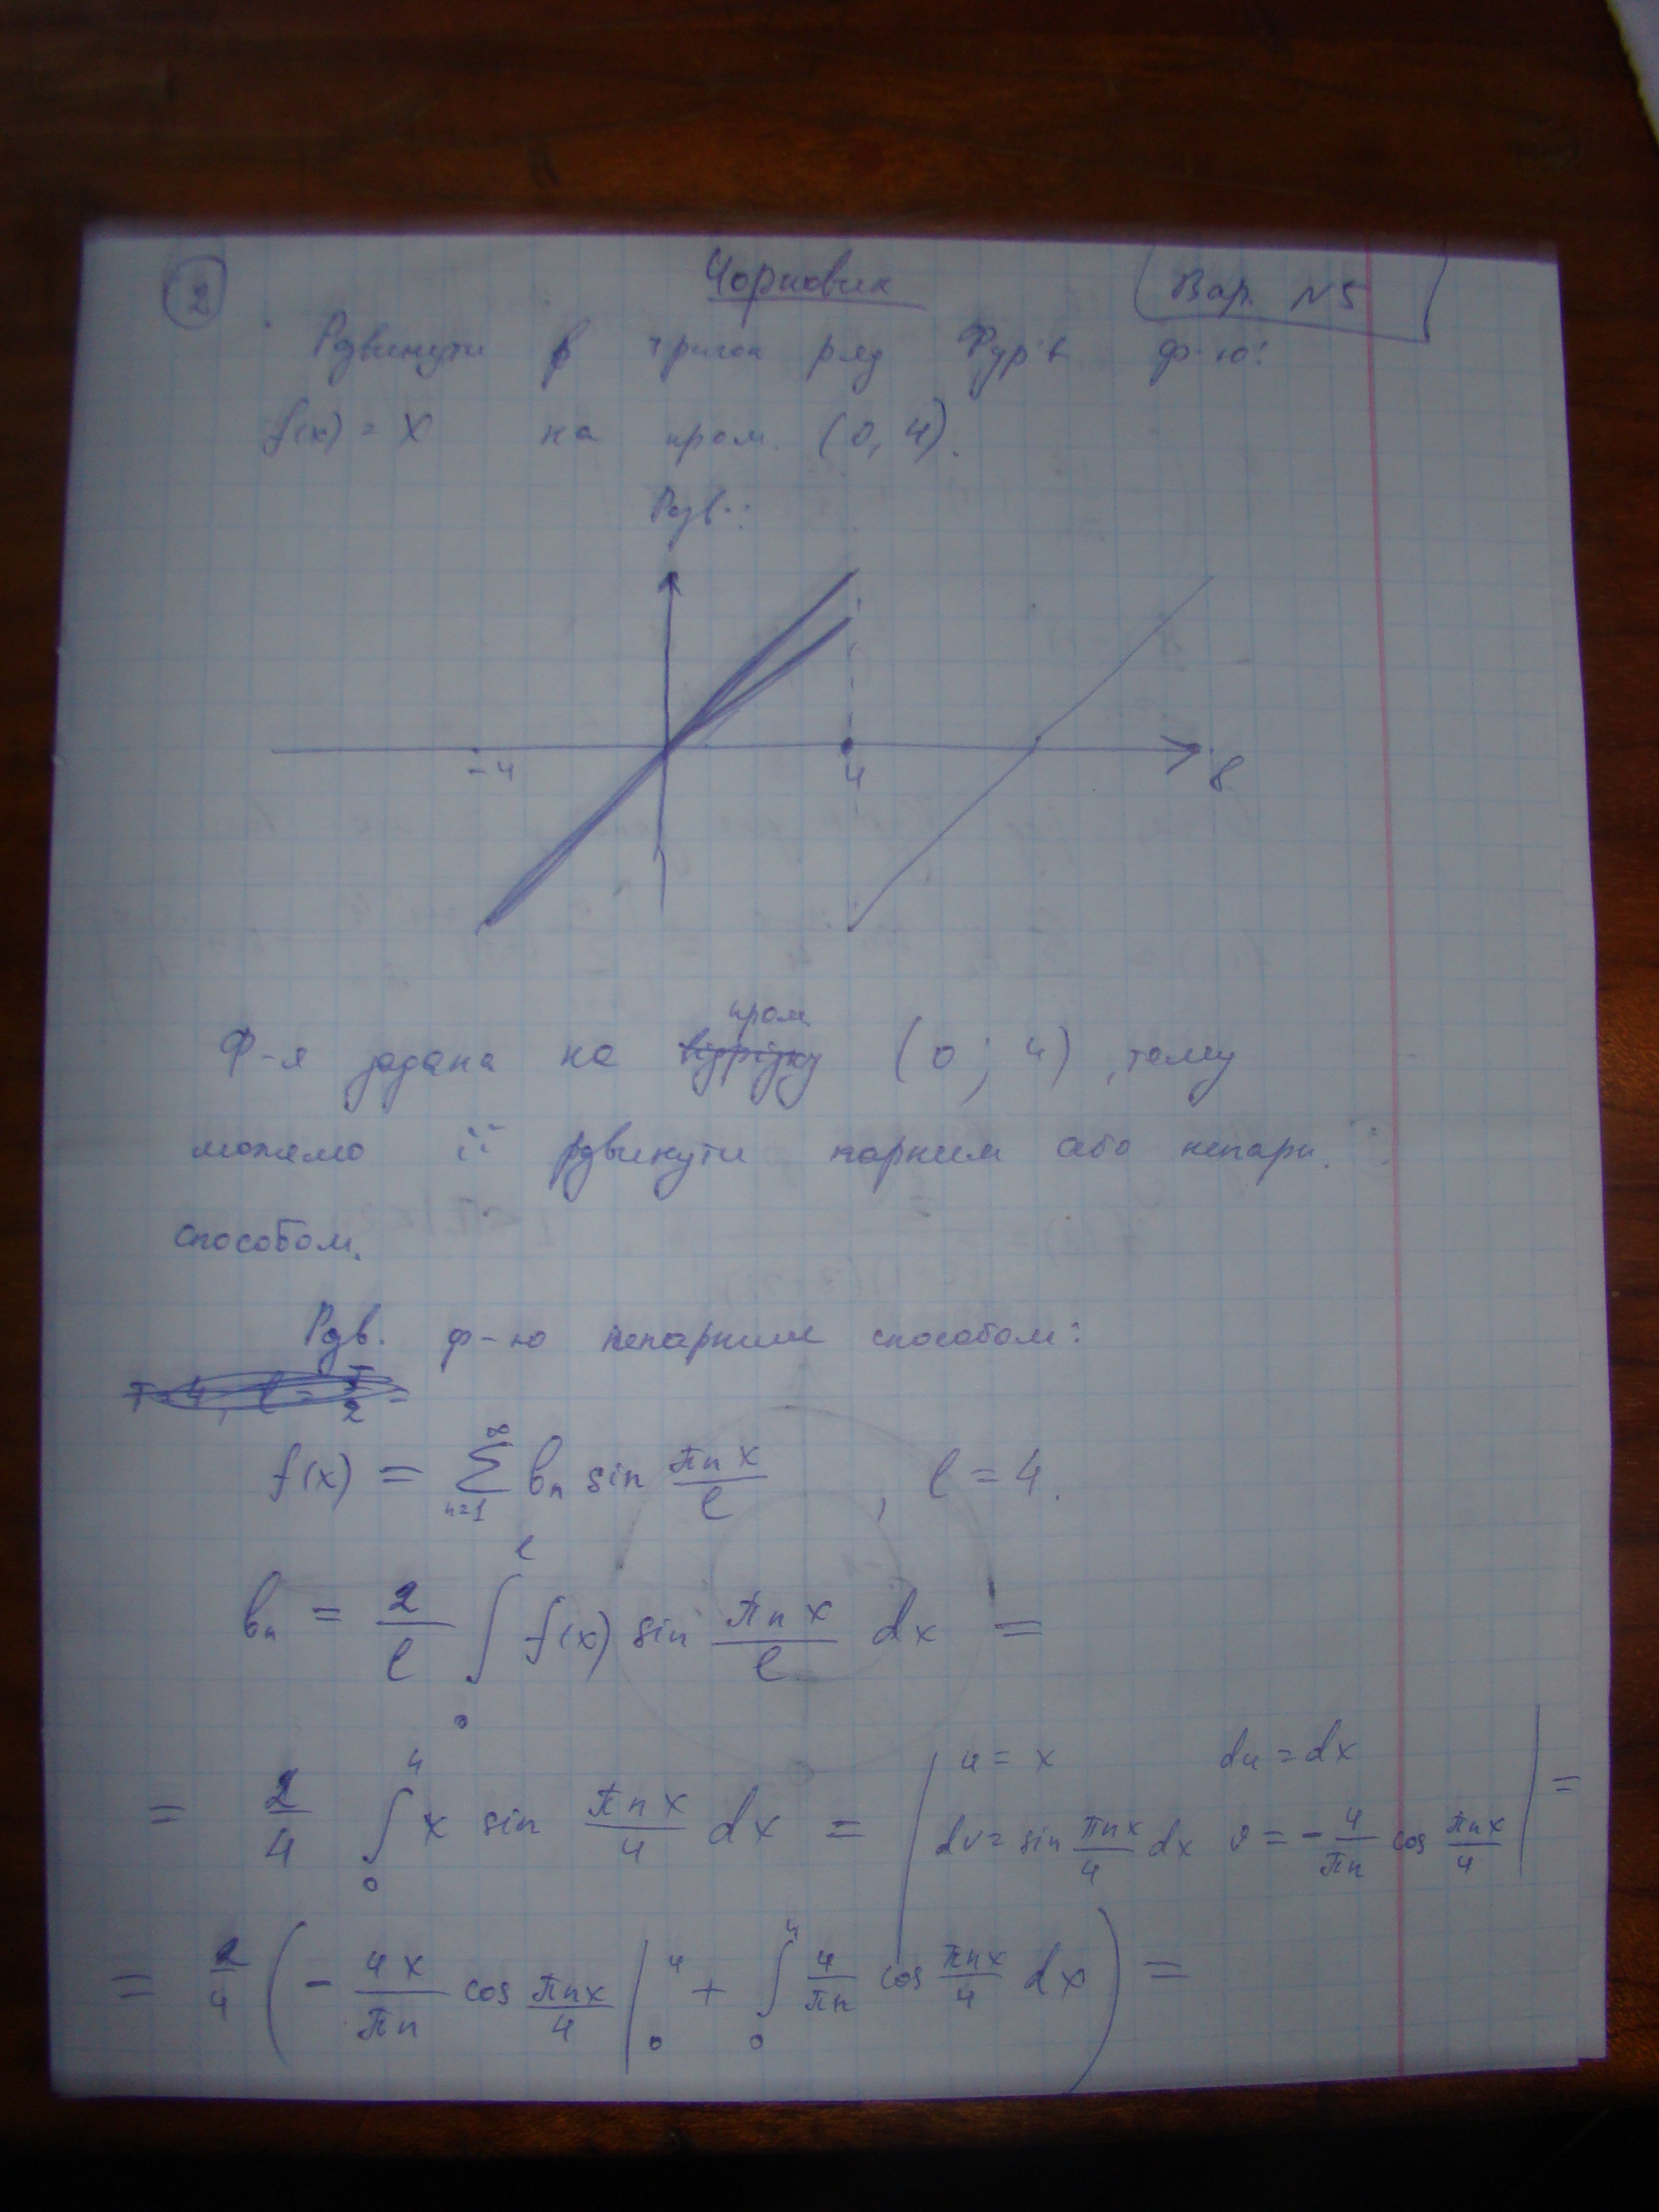 2
Чорновик
Вар. N5
Рдвинути в тригон ряд Фур'є ф-ю:
f(x) = x на пром. (0, 4).
Рдв.:
-4 4 8
пром
Ф-я задана на відрізку (0; 4), тому
можемо її рдвинути парним або непарн.
способом.
Рдв. ф-ю непарним способом:
T=4, l = T/2 =
f(x) = ∑_{n=1}^{∞} bₙ sin πnx/l , l = 4.
bₙ = 2/l ∫₀^l f(x) sin πnx/l dx =
= 2/4 ∫₀⁴ x sin πnx/4 dx = | u = x du = dx
dv = sin πnx/4 dx v = - 4/πn cos πnx/4 | =
= 2/4 ( - 4x/πn cos πnx/4 |₀⁴ + ∫₀⁴ 4/πn cos πnx/4 dx ) =